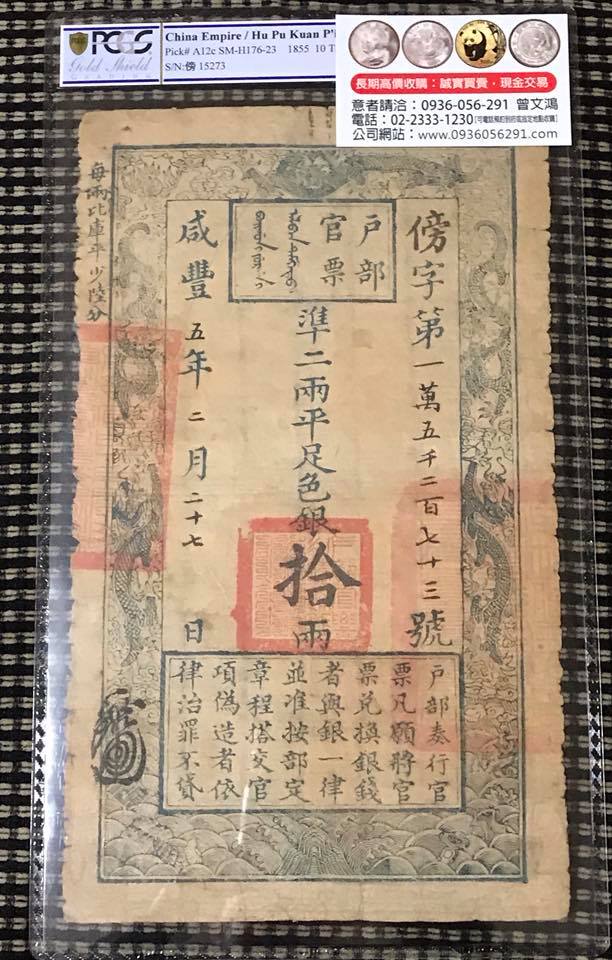 PCGS
Gold Shield
China Empire / Hu Pu Kuan P'i
Pick# A12c SM-H176-23 1855 10 T
S/N:傍 15273
長期高價收購：誠實買賣·現金交易
意者請洽：0936-056-291 曾文鴻
電話：02-2333-1230
公司網站：www.0936056291.com
每兩比庫平少陸分
戶部
官票
傍字第一萬五千二百七十三號
準二兩平足色銀拾兩
咸豐五年二月二十七日
戶部奏行官
票凡願將官
票兌換銀錢
者與銀一律
並准按部定
章程搭交官
項偽造者依
律治罪不貸